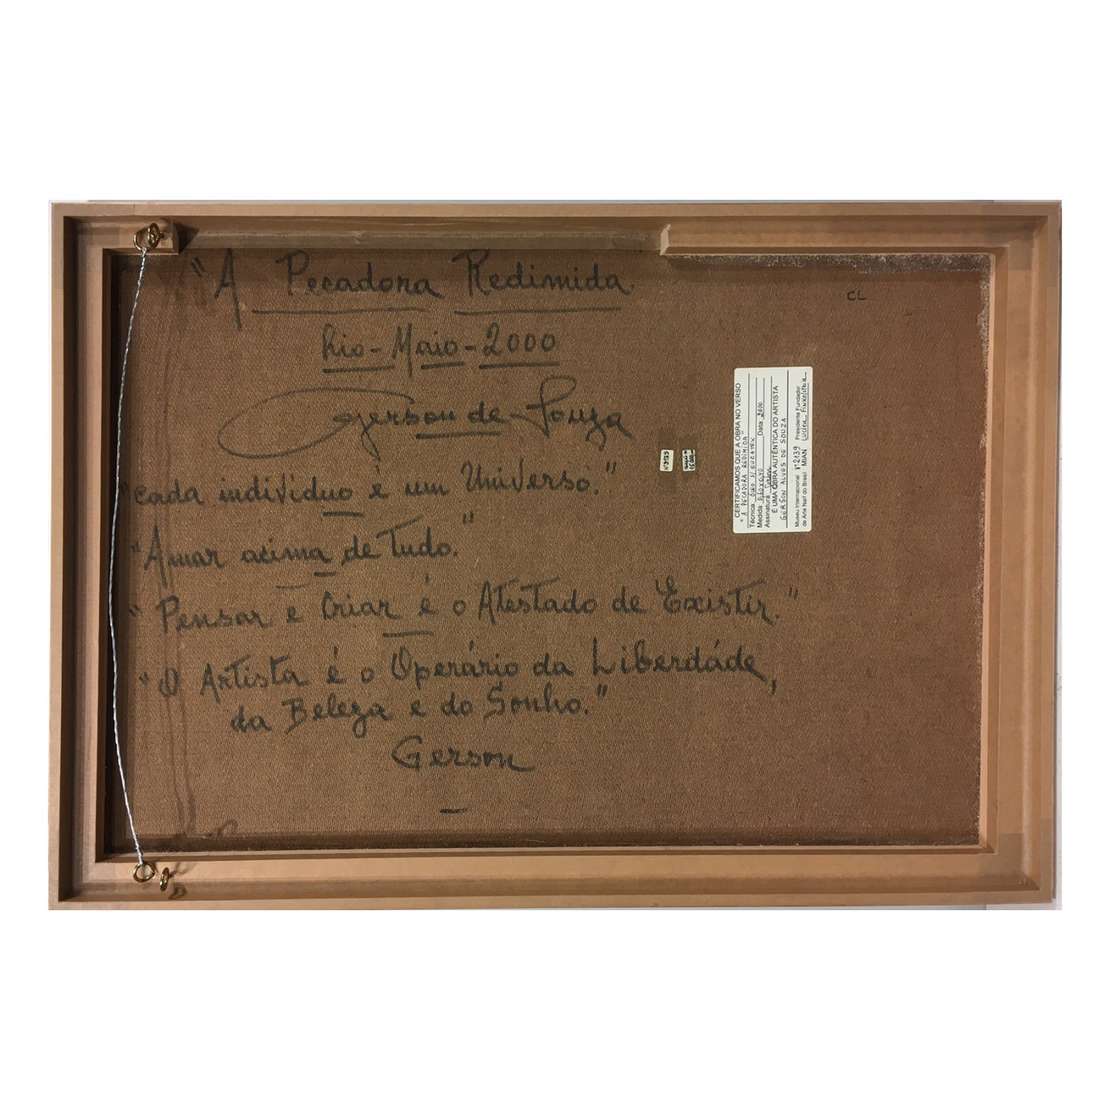 "A Pecadora Redimida
Rio-Maio-2000
Gerson de Souza
"cada indivíduo é um Universo."
"Amar acima de Tudo."
"Pensar e Criar é o Atestado de Existir."
"O Artista é o Operário da Liberdáde,
da Beleza e do Sonho."
Gerson
CL
CERTIFICAMOS QUE A OBRA NO VERSO
"A PECADORA REDIMIDA"
Técnica
Medida Data 2000
Assinatura
É UMA OBRA AUTÊNTICA DO ARTISTA
GERSON ALVES DE SOUZA
Museu Internacional Nº2139 Presidente Fundador
de Arte Naïf do Brasil MIAN Lucien Finkelstein